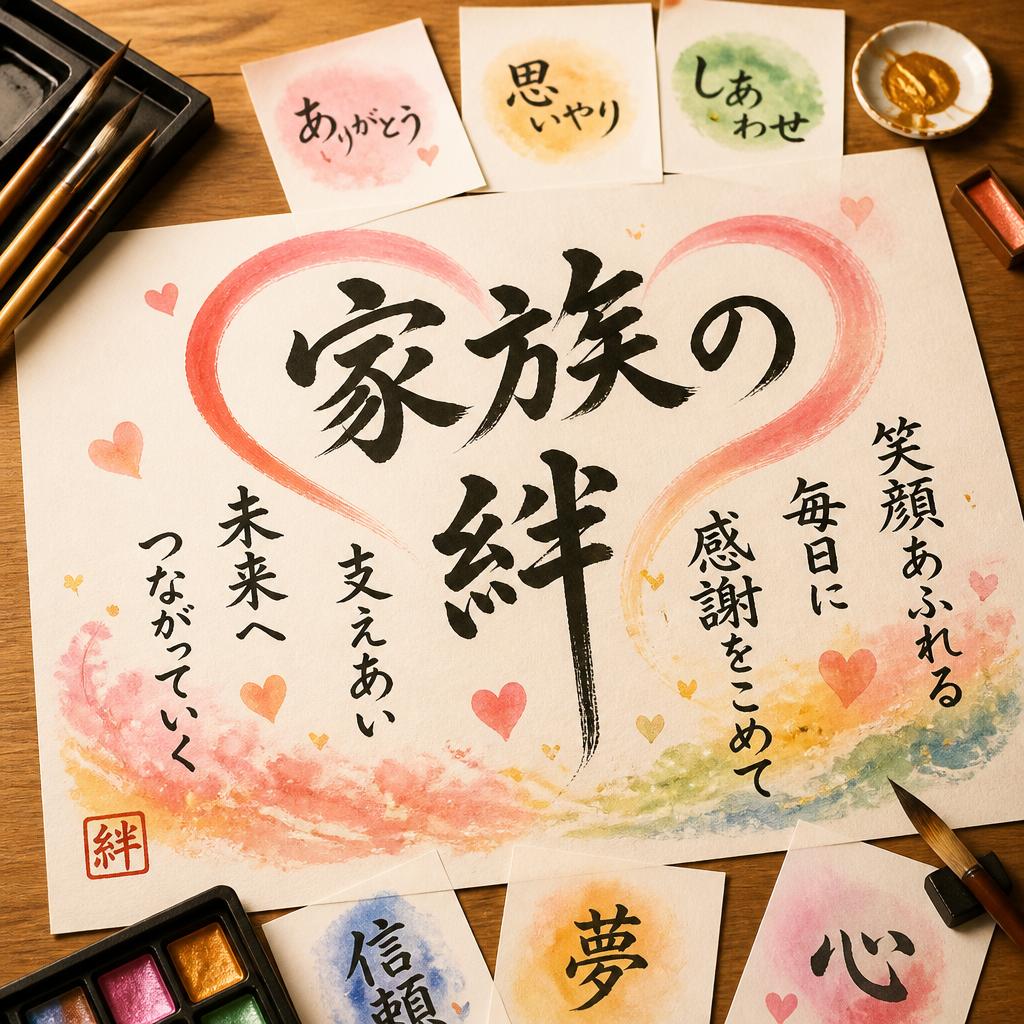 ありがとう
思
いやり
しあ
わせ
家族の
絆
笑顔あふれる
毎日に
感謝をこめて
支えあい
未来へ
つながっていく
絆
信頼
夢
心